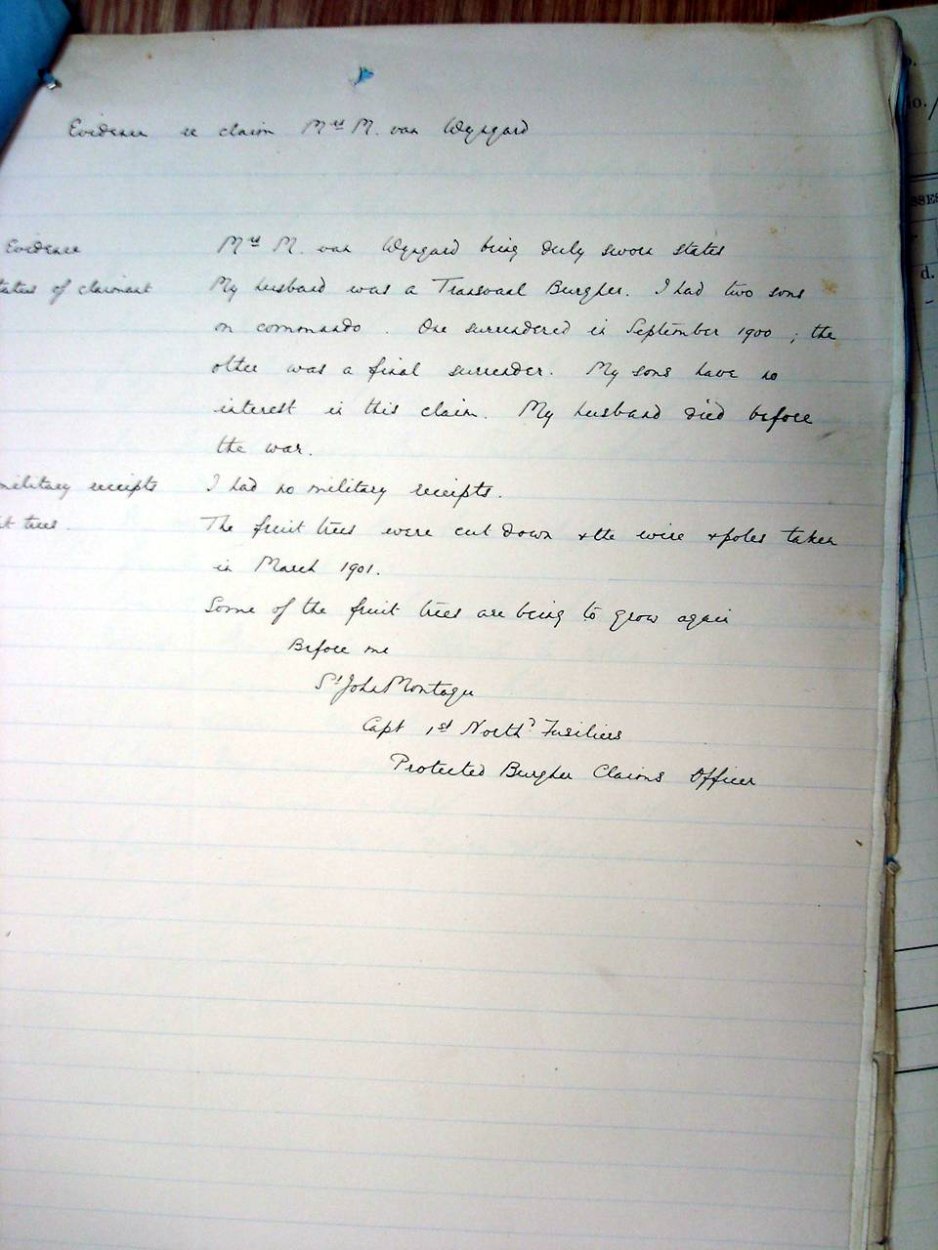 Evidence re claim Mrs M. van Wyngard
Evidence Mrs M. van Wyngard being duly sworn states
tatus of claimant My husband was a Transvaal Burgher. I had two sons
on commando. One surrendered in September 1900; the
other was a final surrender. My sons have no
interest in this claim. My husband died before
the war.
military receipts I had no military receipts.
it trees. The fruit trees were cut down & the wire & poles taken
in March 1901.
Some of the fruit trees are being to grow again
Before me
St John Montagu
Capt 1st North'd Fusiliers
Protected Burgher Claims Officer
o./
SSES
d.